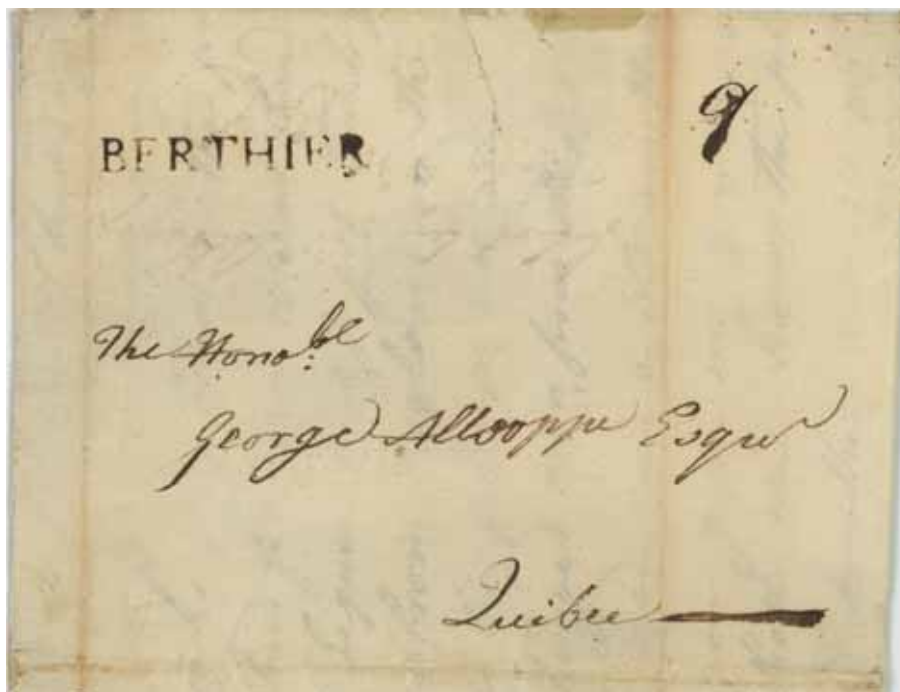 BERTHIER
9
The Honobl:
George Allsoppe Esqr
Quibec